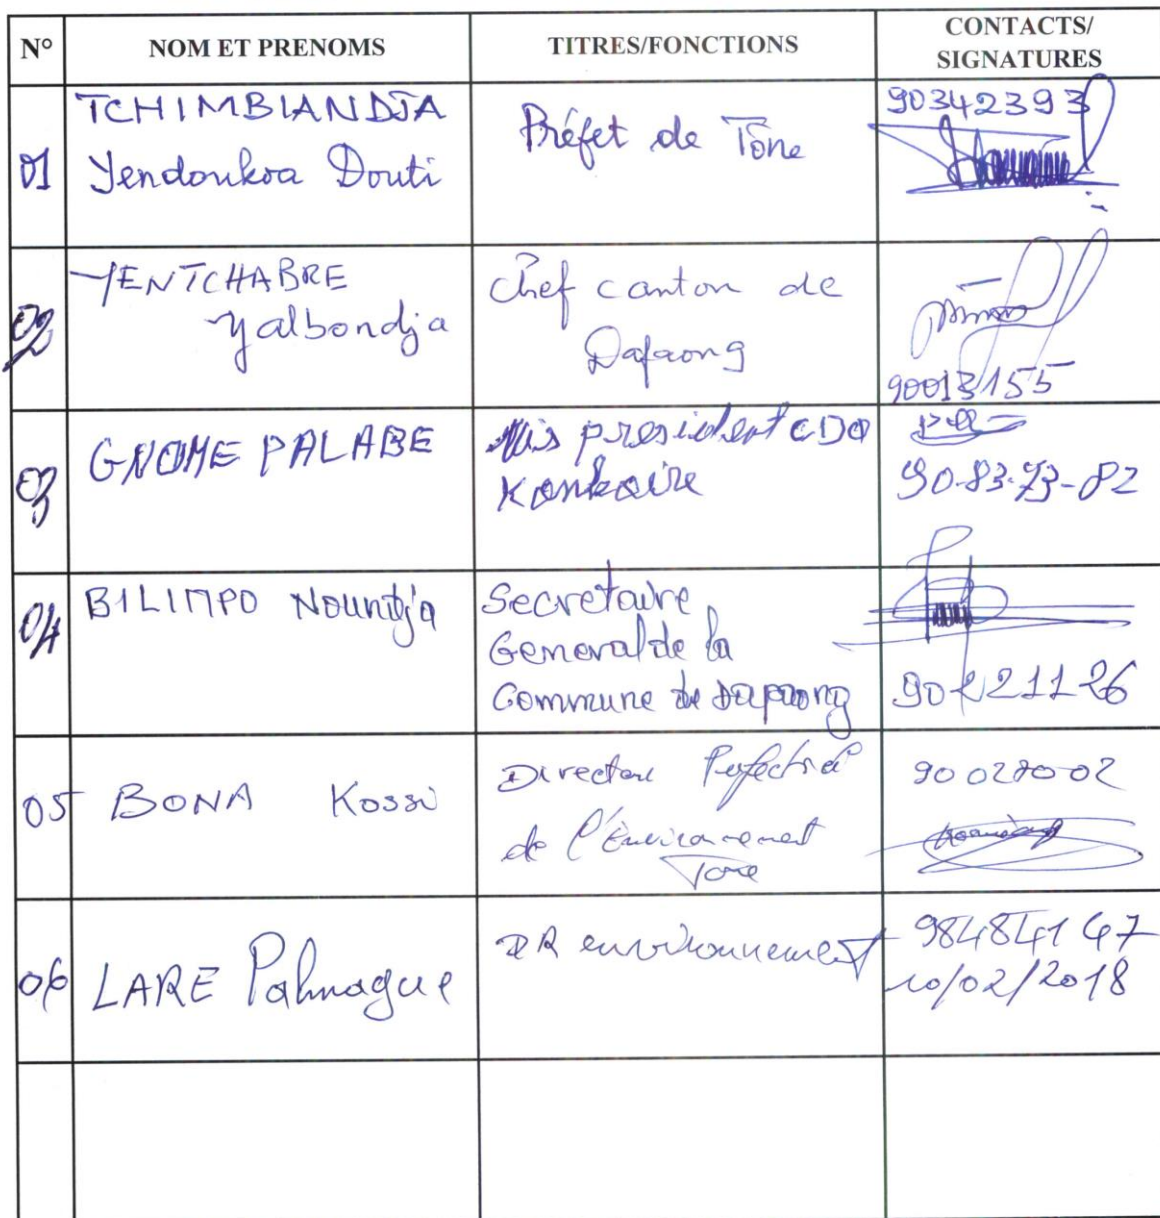 N° NOM ET PRENOMS TITRES/FONCTIONS CONTACTS/
SIGNATURES
01 TCHIMBIANDJA
Yendoukoa Douti
Préfet de Tône
90342393
02 YENTCHABRE
Yalbondja
Chef canton de
Dapaong
90013155
03 GNOME PALABE
president CDQ
90-83-73-82
04 BILIMPO Nounidja
Secretaire
General de la
Commune de Dapaong
90221126
05 BONA Kossi
Directeur
de l'Environnement
Tone
90 02 70 02
06 LARE Palmague
DR environnement
98484147
10/02/2018